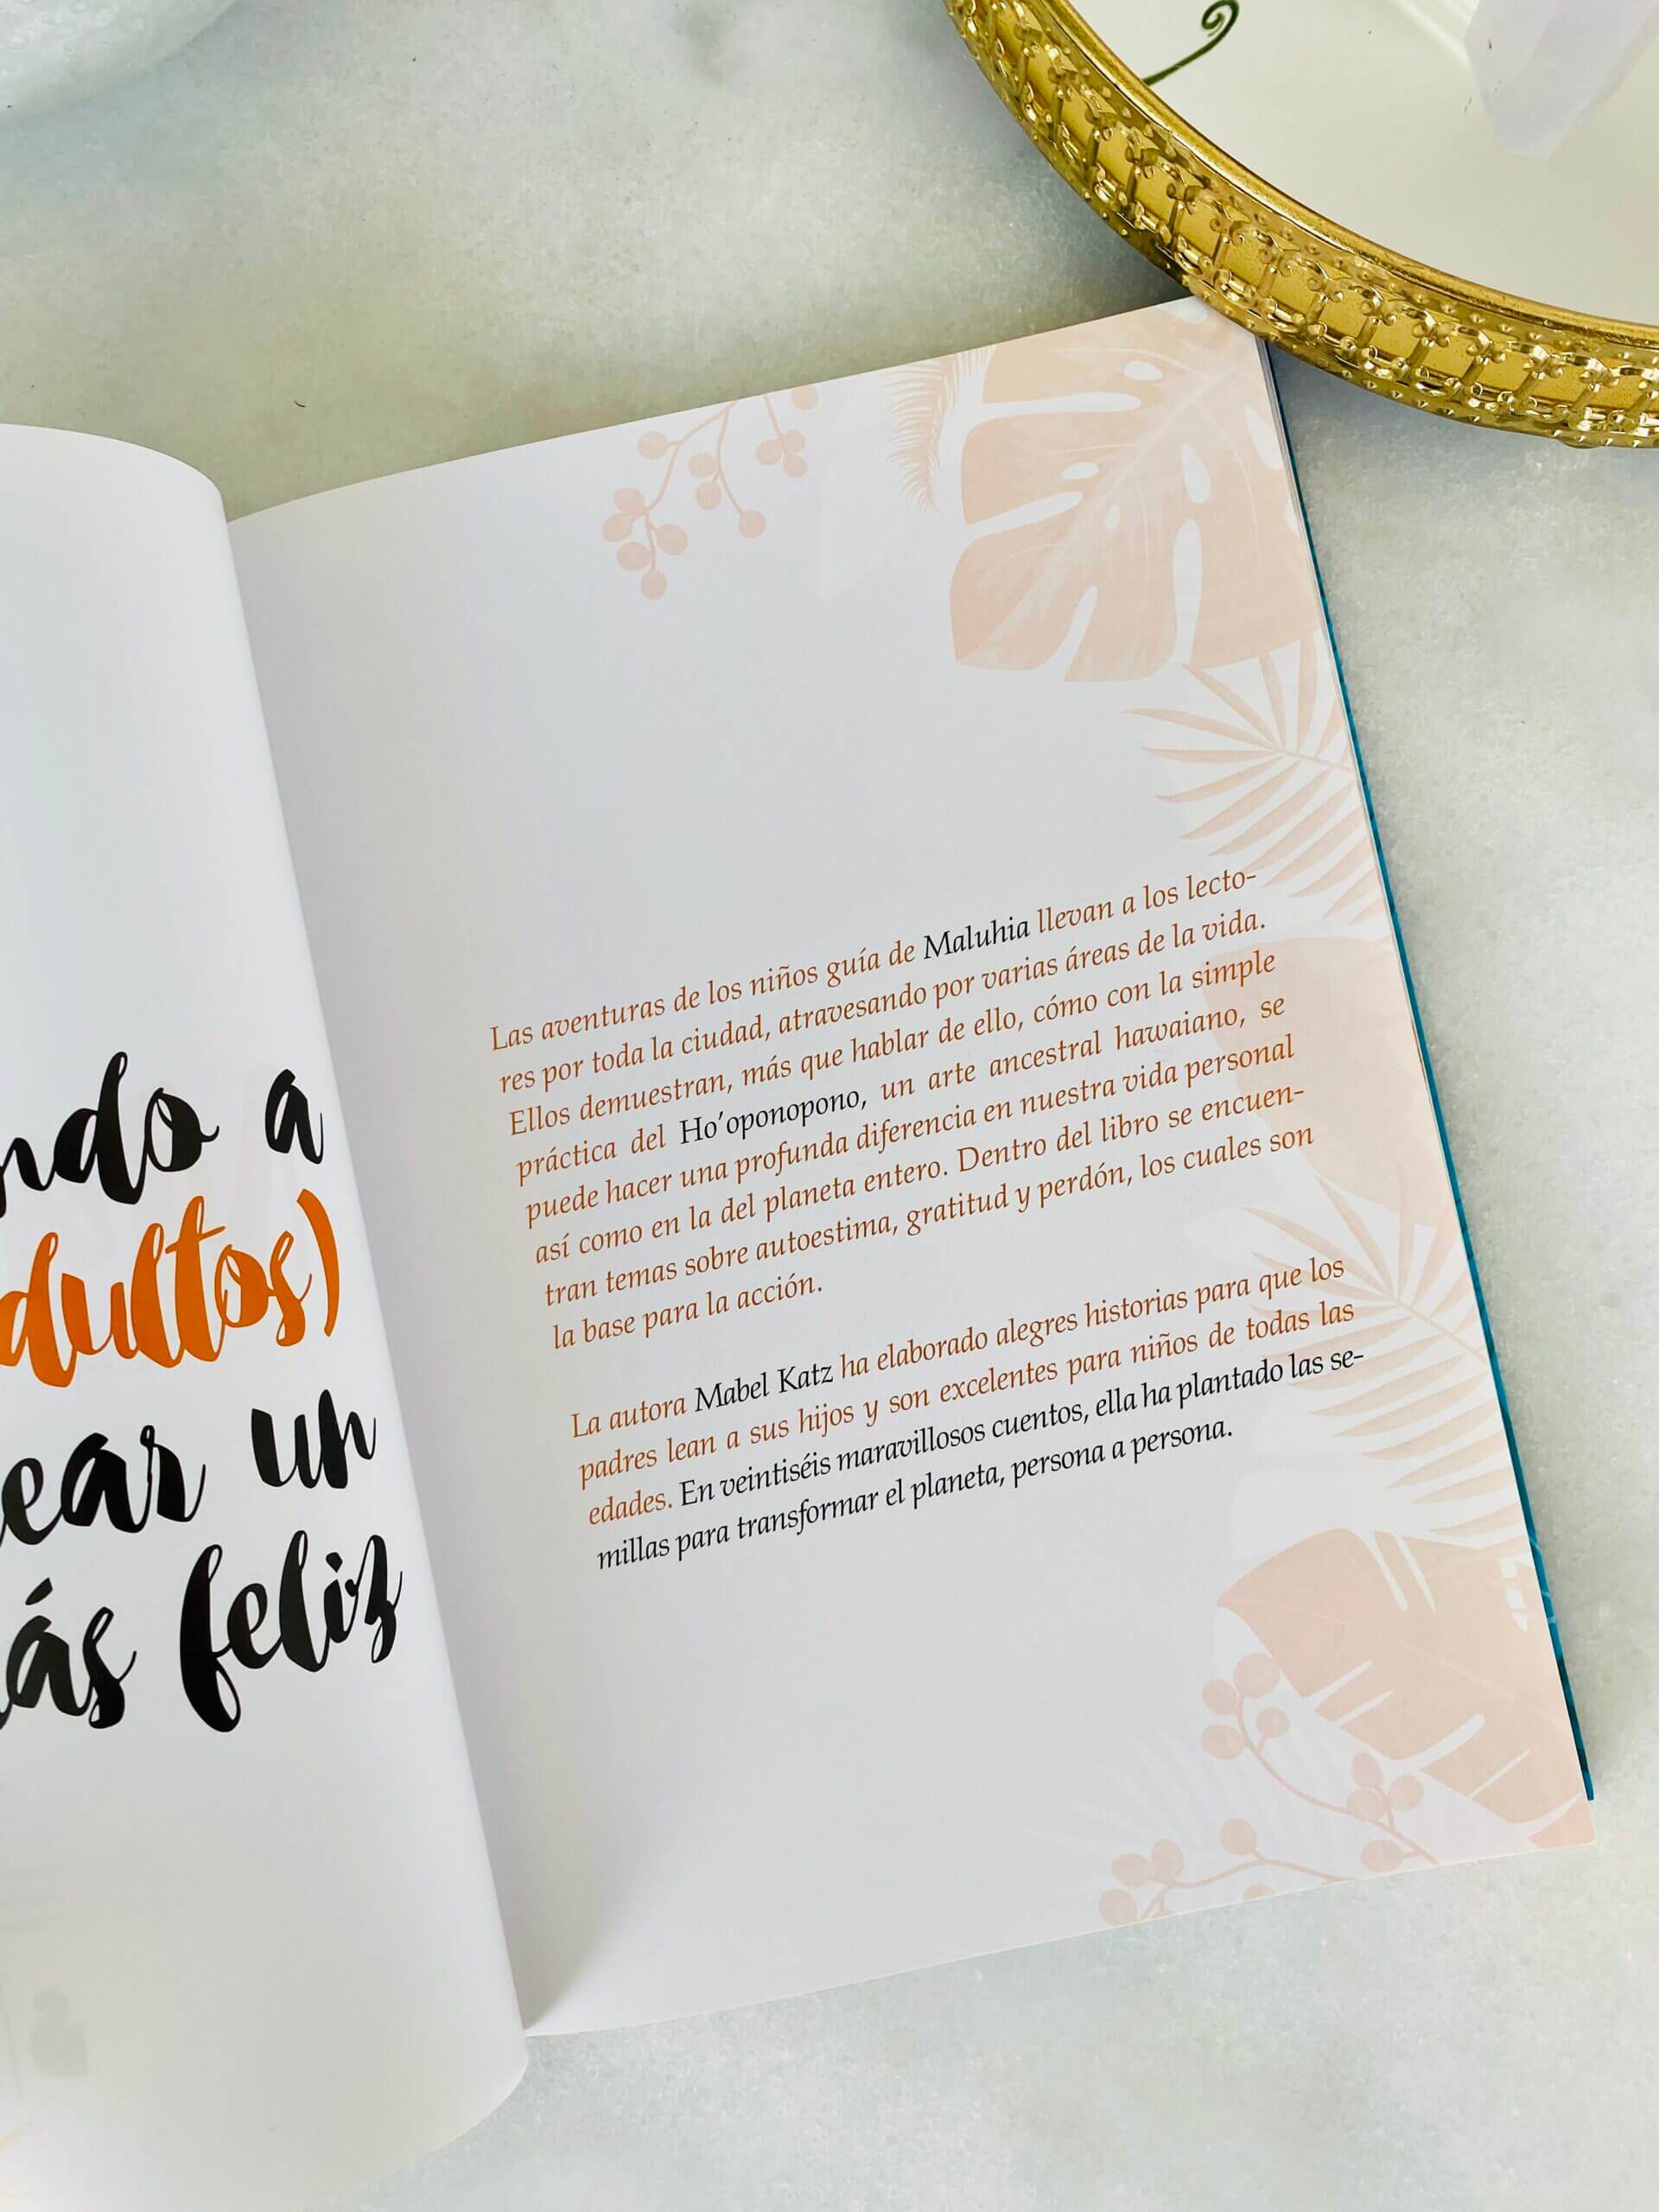 ndo a
dultos)
ear un
ás feliz
Las aventuras de los niños guía de Maluhia llevan a los lecto-
res por toda la ciudad, atravesando por varias áreas de la vida.
Ellos demuestran, más que hablar de ello, cómo con la simple
práctica del Ho'oponopono, un arte ancestral hawaiano, se
puede hacer una profunda diferencia en nuestra vida personal
así como en la del planeta entero. Dentro del libro se encuen-
tran temas sobre autoestima, gratitud y perdón, los cuales son
la base para la acción.
La autora Mabel Katz ha elaborado alegres historias para que los
padres lean a sus hijos y son excelentes para niños de todas las
edades. En veintiséis maravillosos cuentos, ella ha plantado las se-
millas para transformar el planeta, persona a persona.